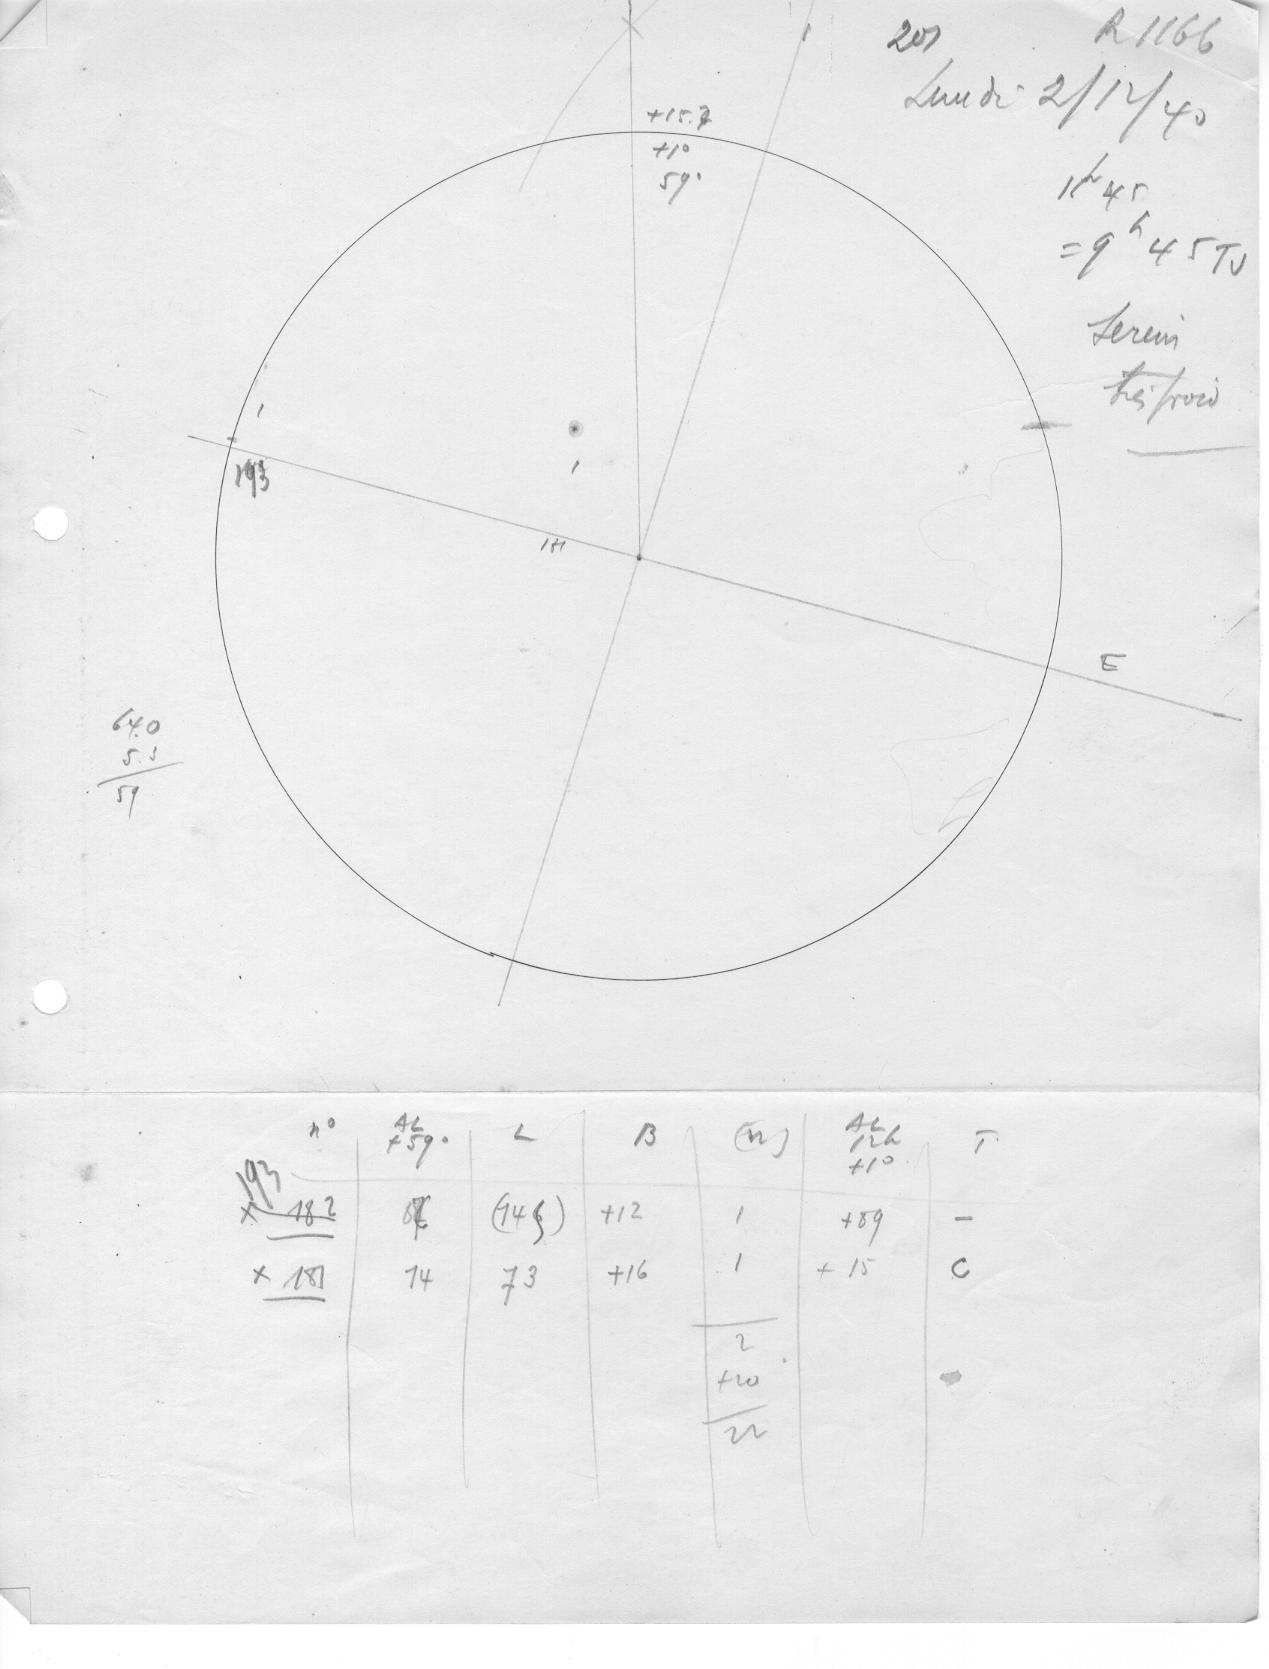 201
R 1166
Lundi 2/12/40
11h45
= 9h45 TU
Serein
très froid
+15.7
+1°
59°
1
1
193
1
181
E
64.0
5.3
59
n° AL +59° L B (n) AL 12h +1° T
193
× 182 (146) +12 1 +89 –
× 181 14 73 +16 1 +15 C
2
+20
22